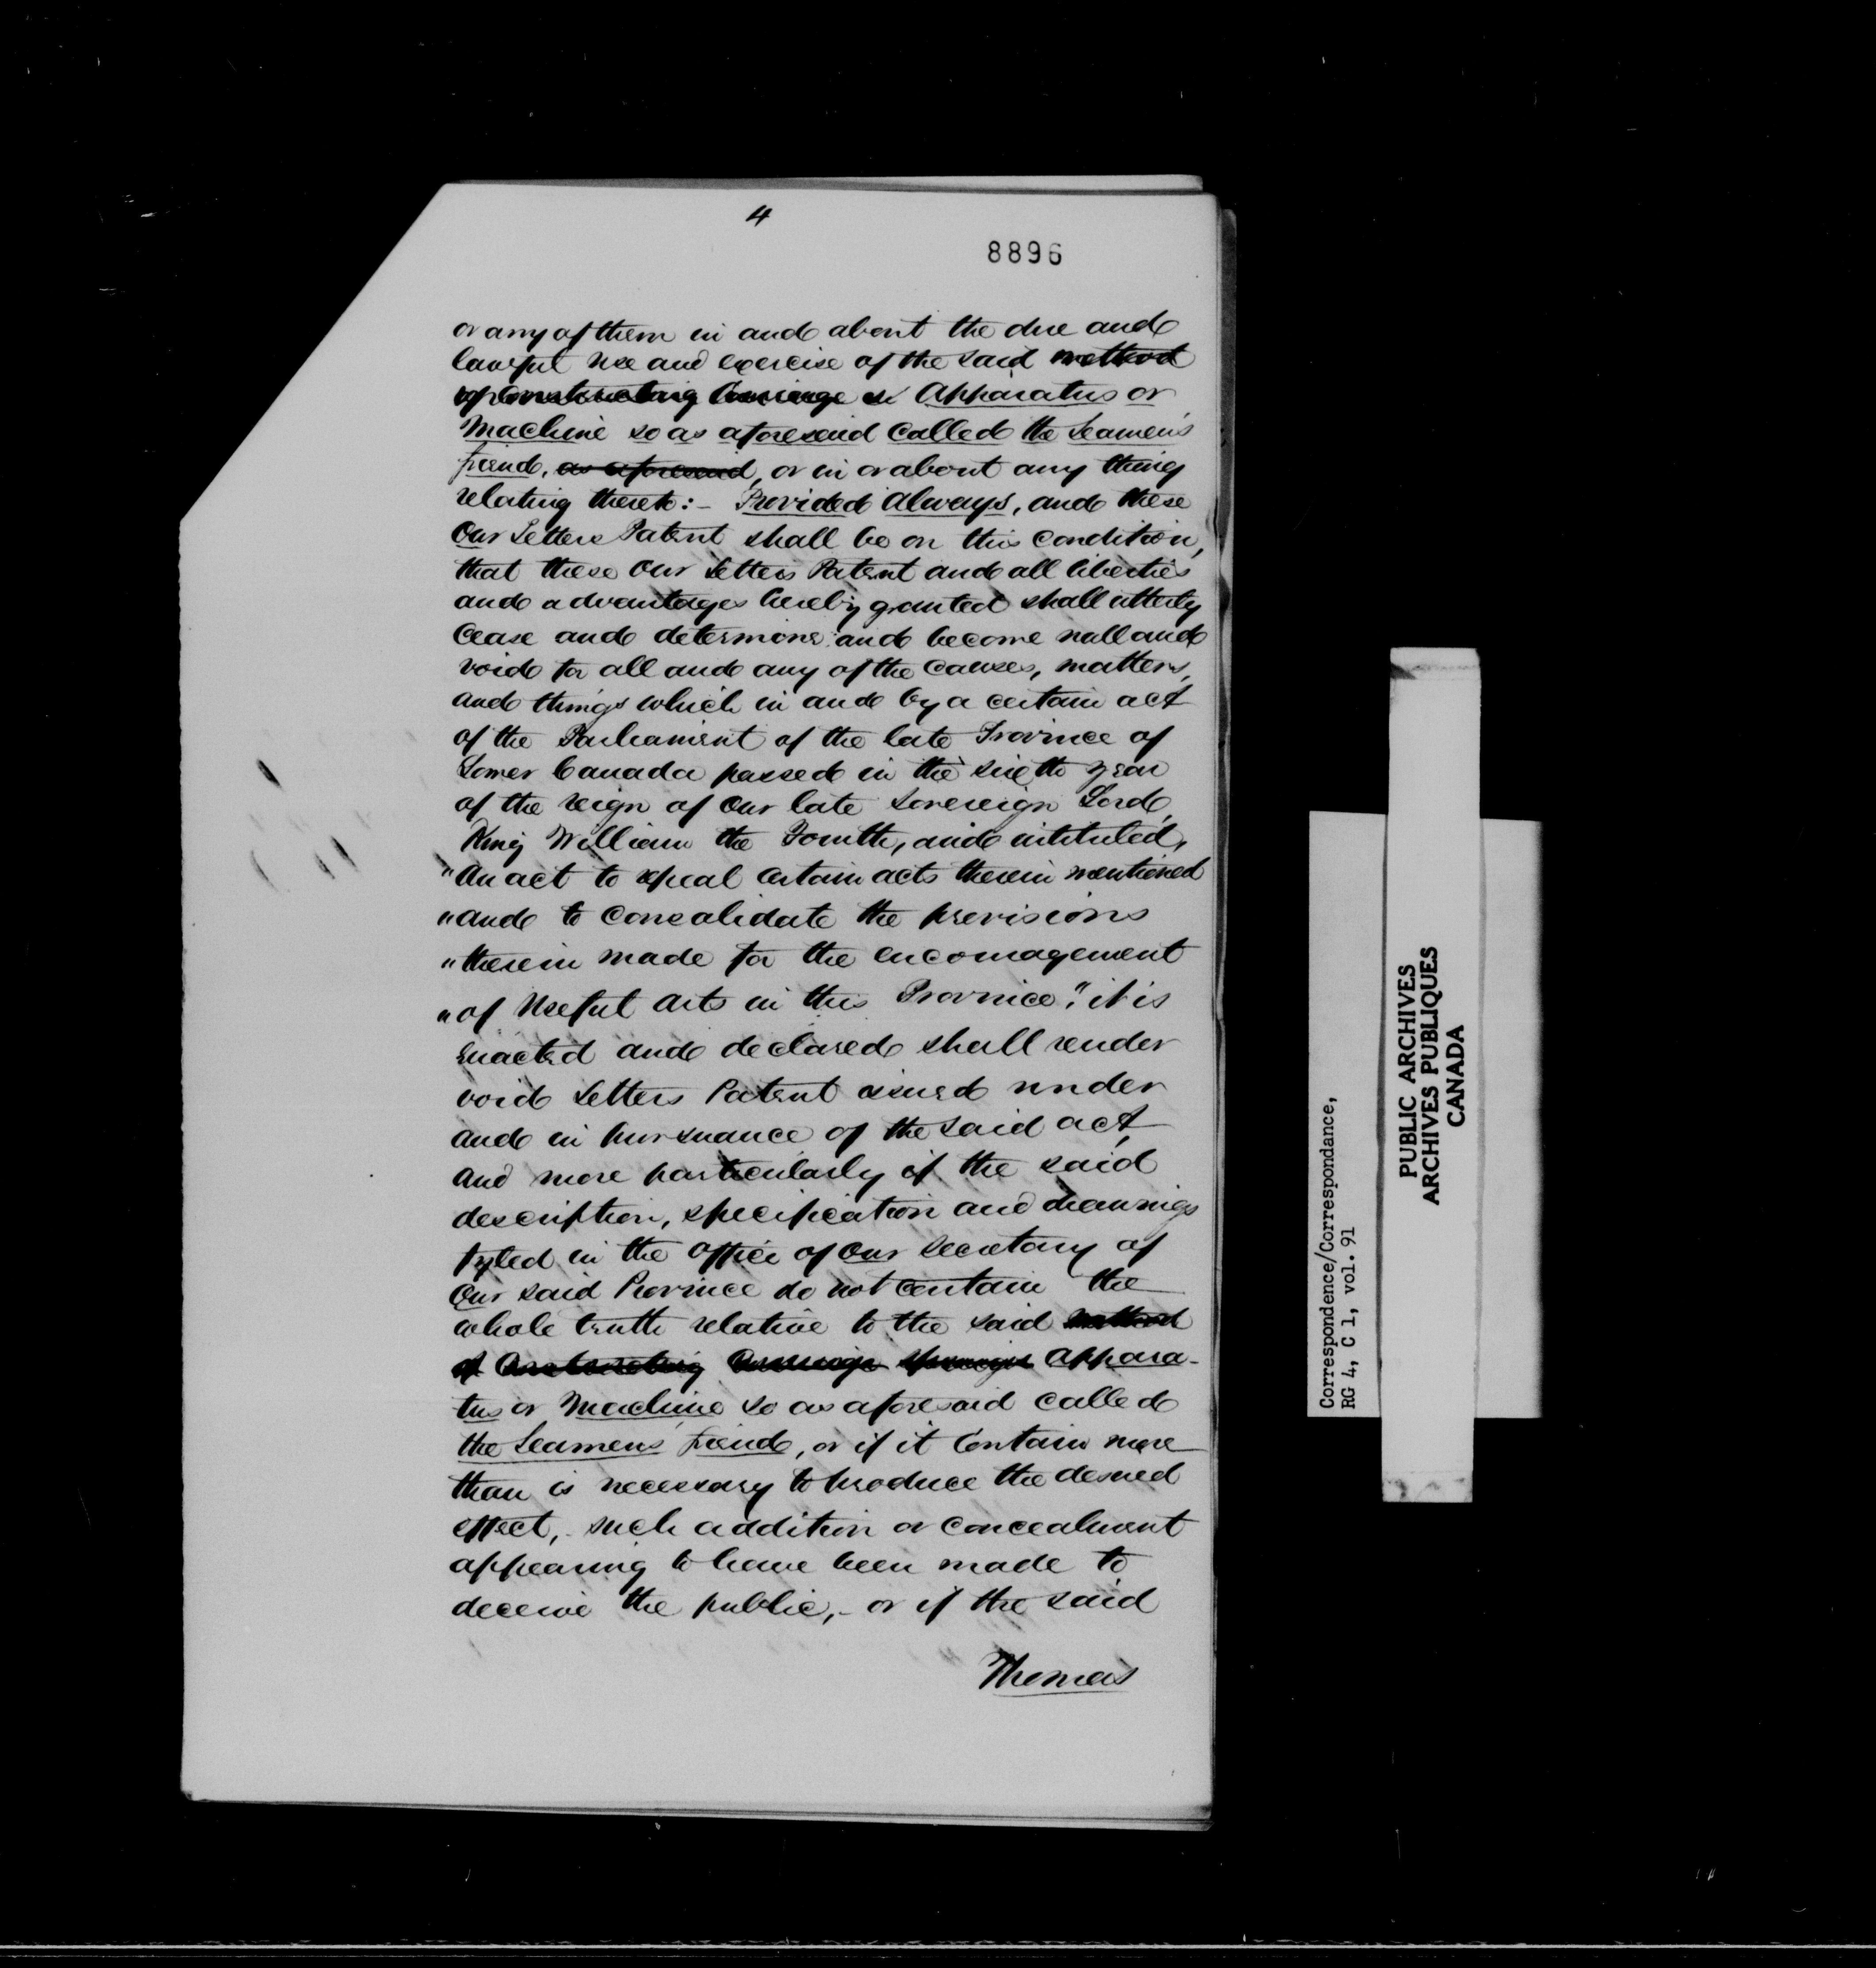 4
8896
or any of them in and about the due and
lawful use and exercise of the said method
of constructing Carriage Apparatus or
Machine so as aforesaid called the Seamen's
friend, as aforesaid, or in or about any thing
relating thereto:- Provided Always, and these
Our Letters Patent shall be on this condition,
that these Our Letters Patent and all liberties
and advantages hereby granted shall utterly
Cease and determine and become null and
void for all and any of the causes, matters,
and things which in and by a certain act
of the Parliament of the late Province of
Lower Canada passed in the sixth year
of the reign of Our late Sovereign Lord
King William the Fourth, and intituled,
"An act to repeal certain acts therein mentioned
"and to consolidate the provisions
"therein made for the encouragement
"of Useful Arts in this Province", it is
enacted and declared shall render
void Letters Patent issued under
and in pursuance of the said act,
and more particularly if the said
description, specification and drawings
fyled in the office of Our Secretary of
Our said Province do not contain the
whole truth relative to the said method
of Constructing Carriage Springs Appara-
tus or Machine so as aforesaid called
the Seamens' friend, or if it Contain more
than is necessary to produce the desired
effect, such addition or concealment
appearing to have been made to
deceive the public,- or if the said
Thomas
Correspondence/Correspondance,
RG 4, C 1, vol. 91
PUBLIC ARCHIVES
ARCHIVES PUBLIQUES
CANADA